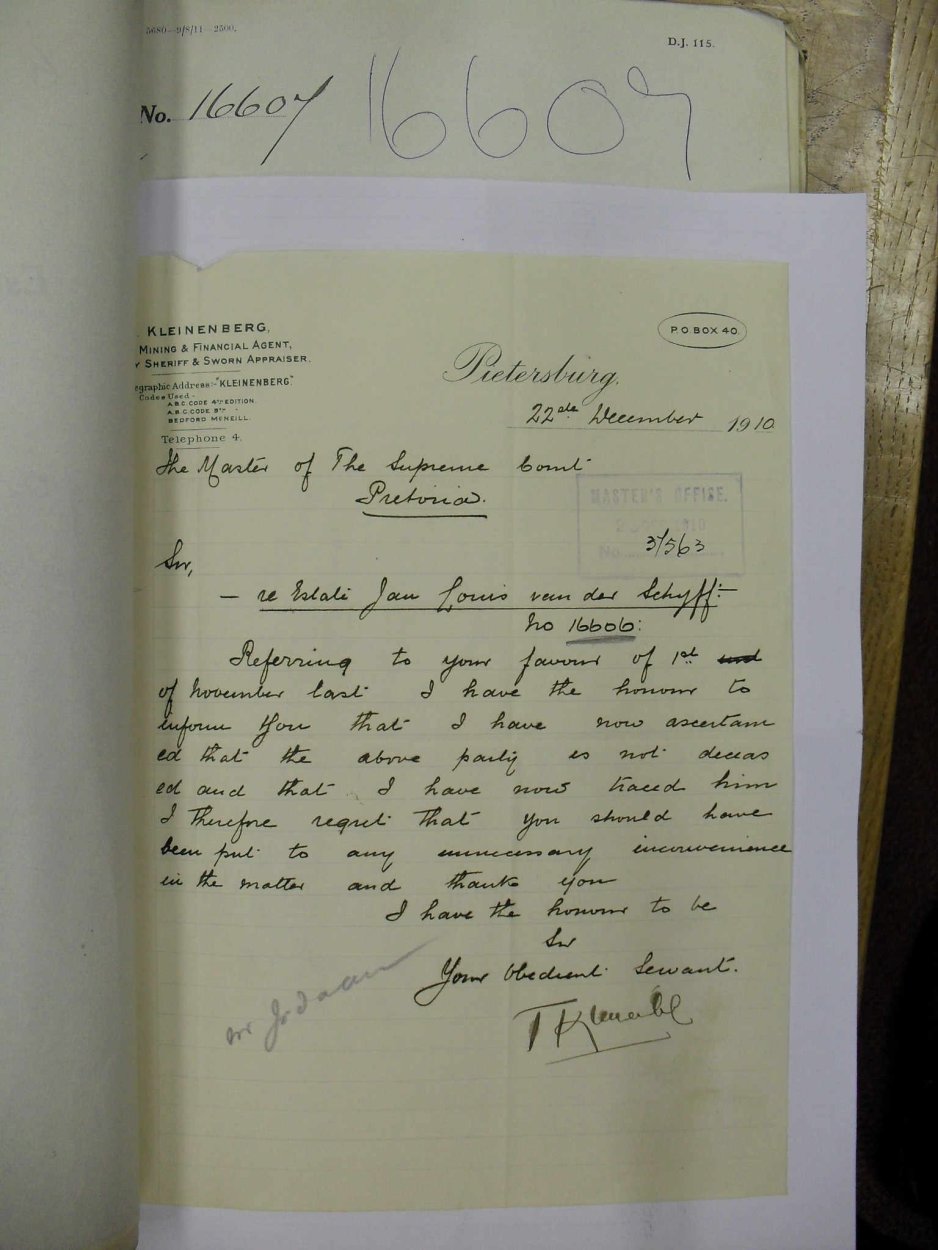 5680—9/8/11—2500.
D.J. 115.
No. 16607
16607
KLEINENBERG,
MINING & FINANCIAL AGENT,
SHERIFF & SWORN APPRAISER.
egraphic Address:-"KLEINENBERG."
Codes Used -
A.B.C. CODE 4TH EDITION.
A.B.C. CODE 5TH "
BEDFORD MCNEILL.
Telephone 4.
P.O BOX 40.
Pietersburg,
22nde December 1910
The Master of The Supreme Court
Pretoria.
MASTER'S OFFICE.
1910
No. 3/563
Sir,
— re Estate Jan Louis van der Schyff:—
No 16606:
Referring to your favour of 1st
of November last I have the honour to
inform You that I have now ascertain
ed that the above party is not deceas
ed and that I have now traced him
I therefore regret that you should have
been put to any unnecessary inconvenience
in the matter and thank you
I have the honour to be
Sir
Your Obedient Servant.
Mr Jordaan